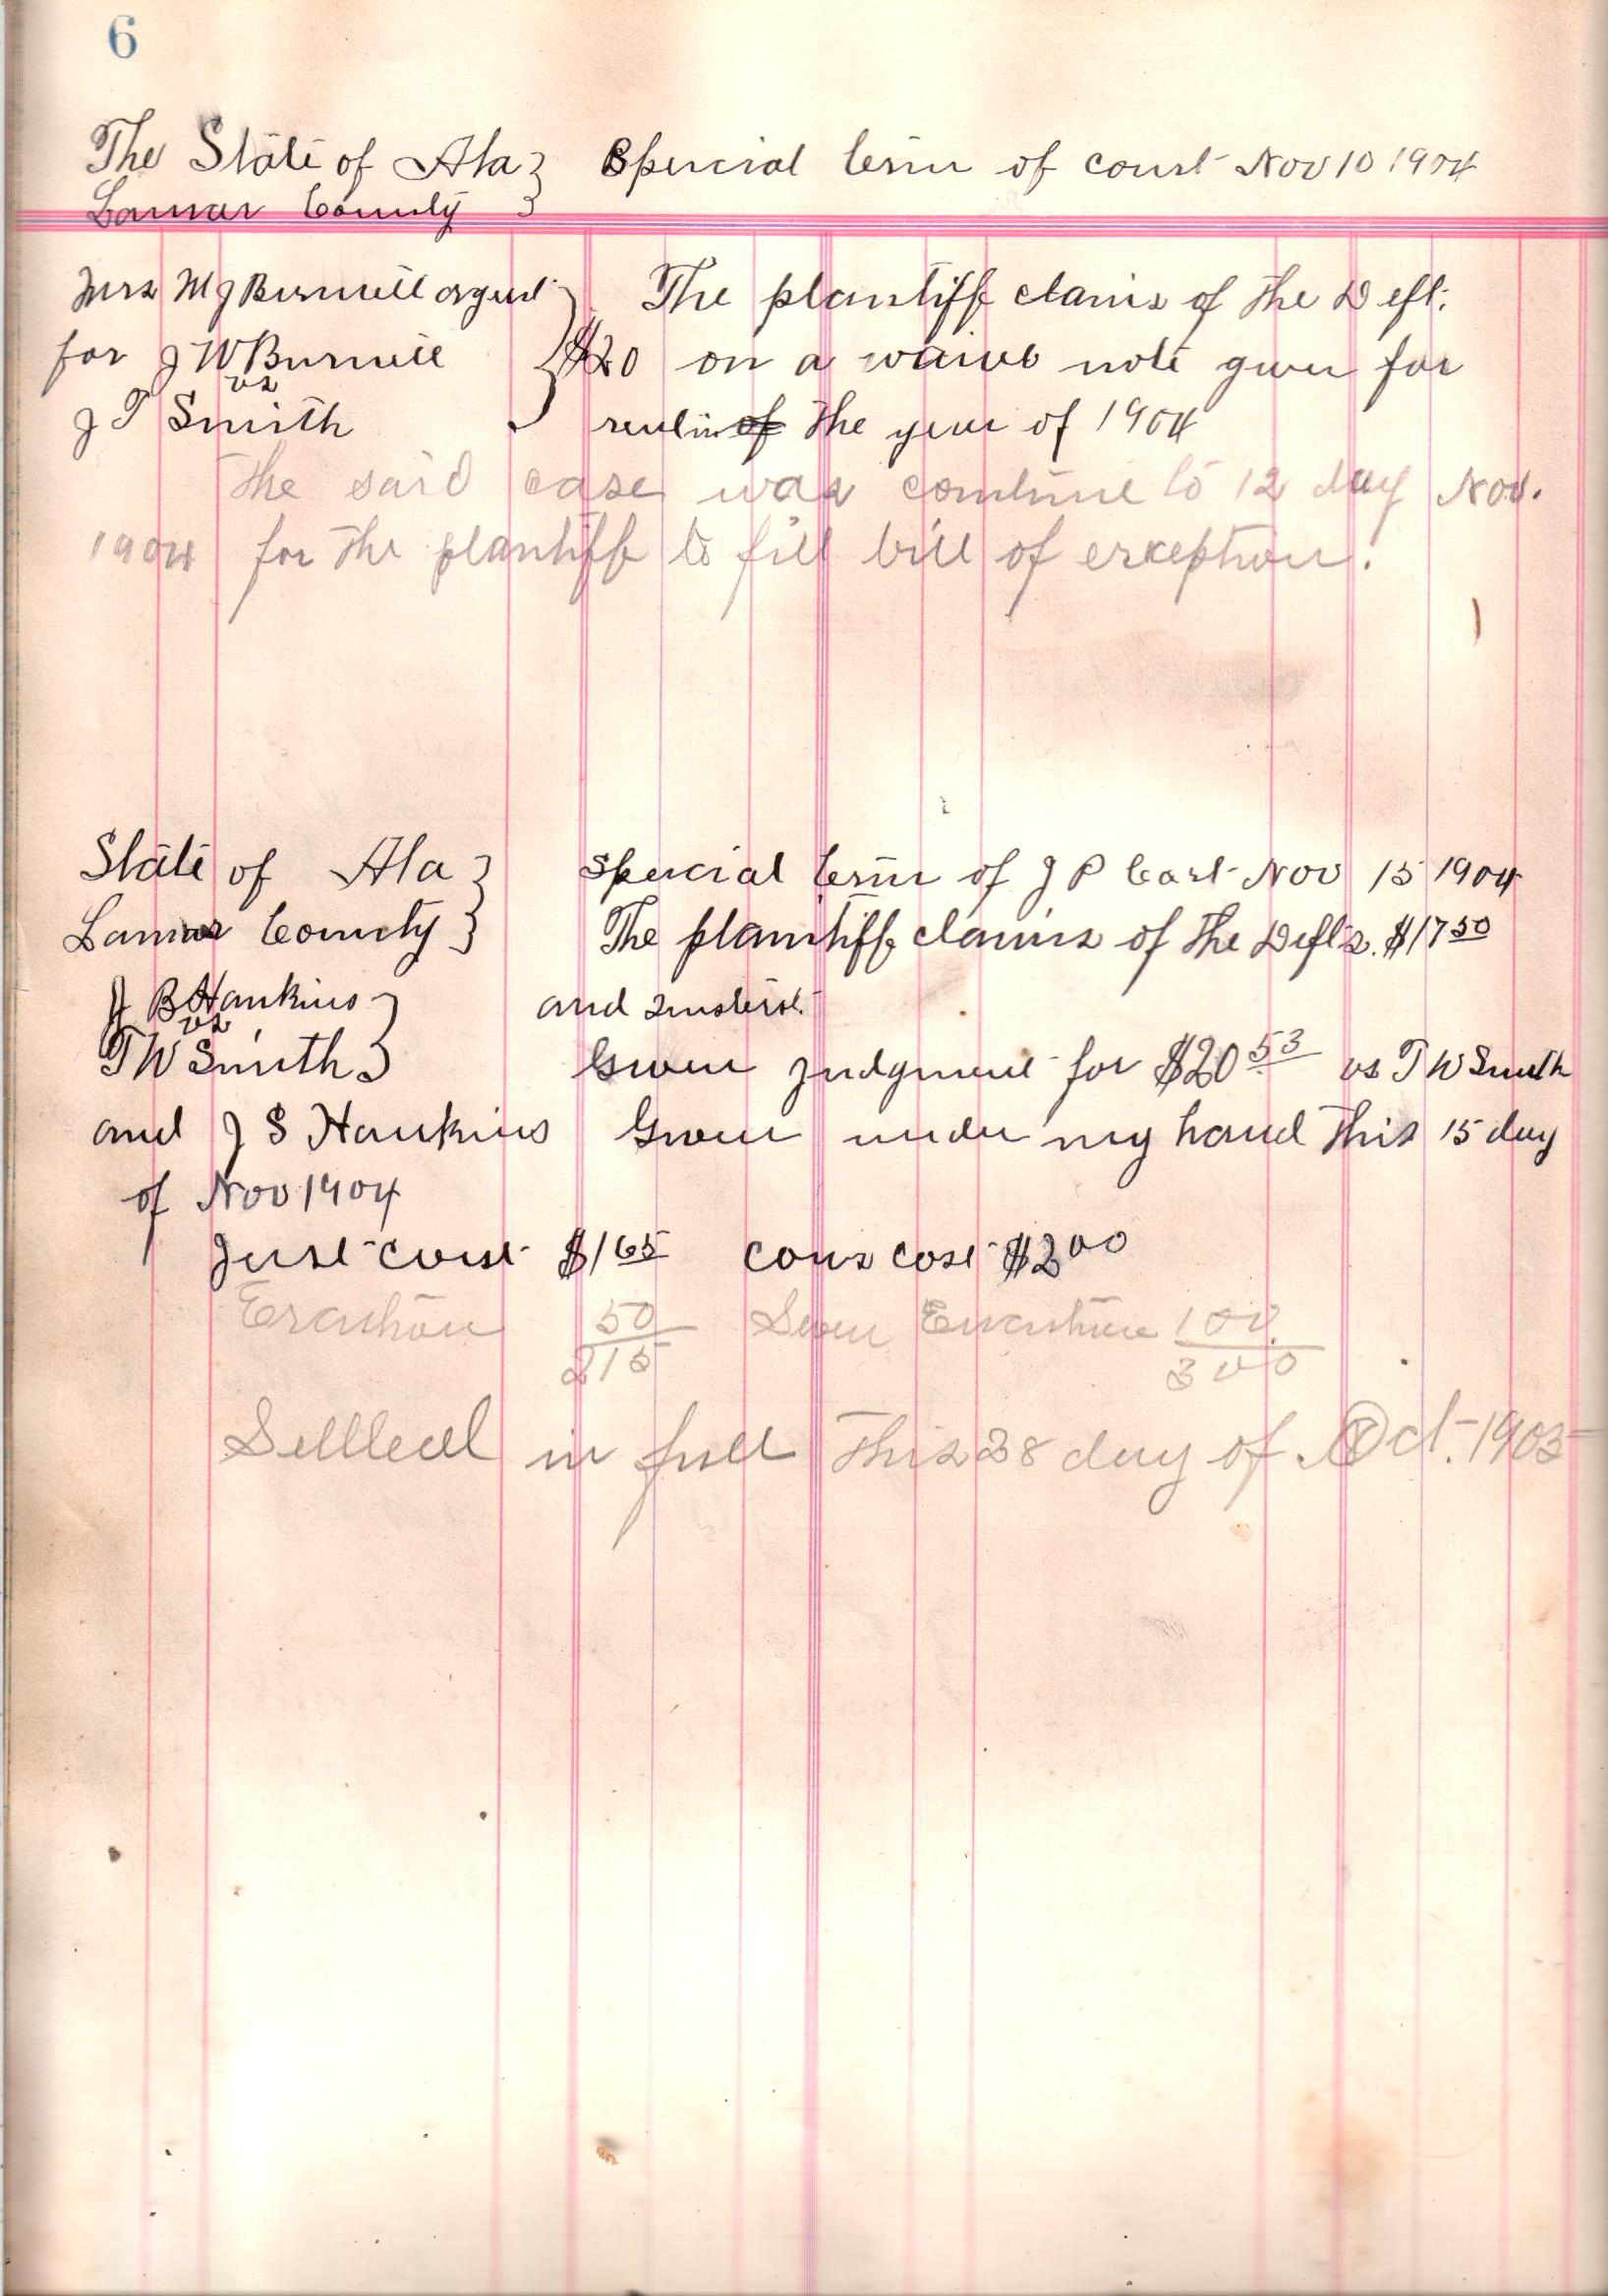 6
The State of Ala } Special term of court Nov 10 1904
Lamar County }
Mrs M J Burnell agent } The plantiff claims of the Deft.
for J W Burnell } $20 on a waive note given for
vs
J T Smith } rent in of the year of 1904
The said case was continue to 12 day Nov.
1904 for the plantiff to fill bill of exception.
State of Ala } Special term of J P Cort Nov 15 1904
Lamar County } The plantiff claims of the Defts. $17 50
J B Hankins } and Interst.
vs
T W Smith } Given judgment for $20 53 vs T W Smith
and J S Hankins Given under my hand this 15 day
of Nov 1904
Just cost $1 65 cons cost $2 00
50 100
2 15 3 00
Settled in full this 28 day of Oct. 1905